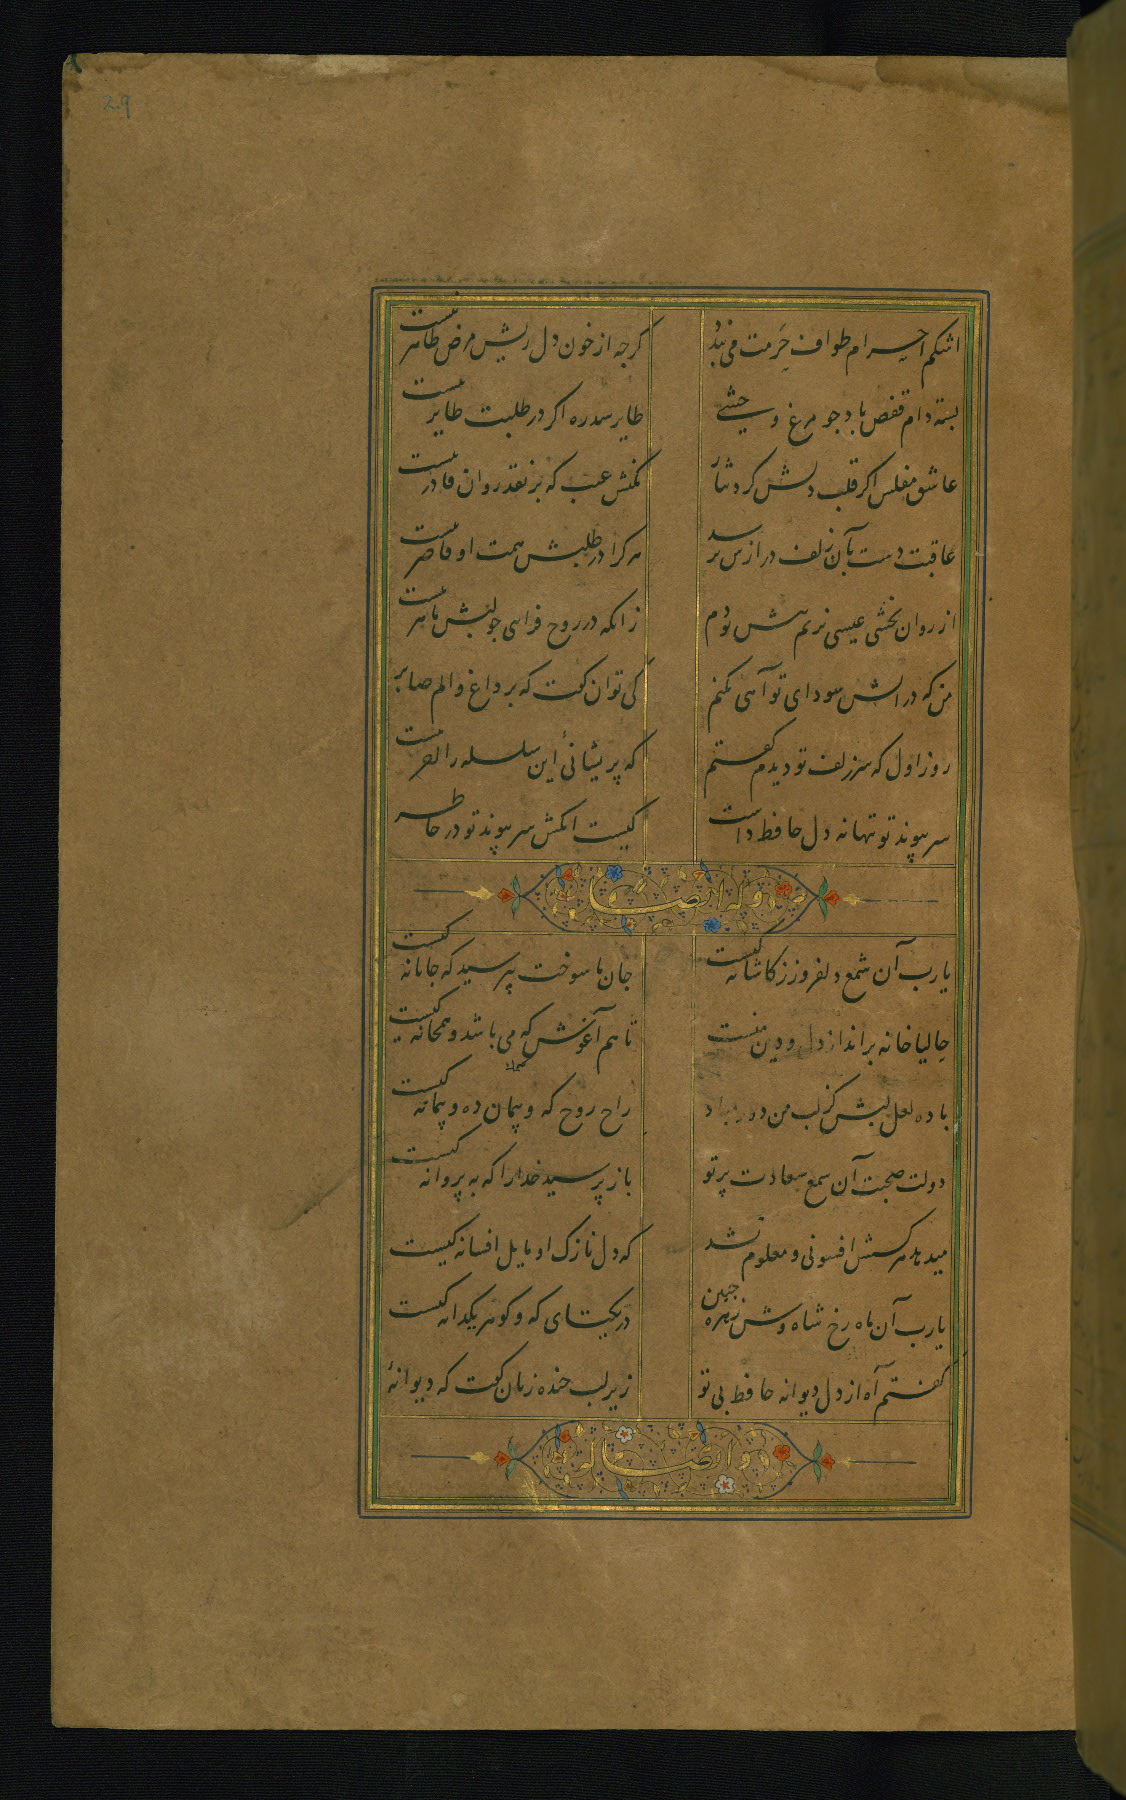 29
اشکم احرام طواف حرمت می بندد
کرچه از خون دل ریش مرض طاهر نیست
بسته دام قفص باد چو مرغ وحشی
طایر سدره اکر در طلبت طایر نیست
عاشق مفلس اکر قلب دلش کرد نثار
مکنش عیب که بر نقد روان قادر نیست
عاقبت دست بآن زلف درازش برسد
هر کرا در طلبش همت او قاصر نیست
از روان بخشی عیسی نزنم پیش تو دم
زانکه در روح فزایی چو لبش ماهر نیست
من که در آتش سودای تو آهی نکنم
کی توان کفت که بر داغ دلم صابر نیست
روز اول که سر زلف تو دیدم کفتم
که پریشانی این سلسله را آخر نیست
سر پیوند تو تنها نه دل حافظ راست
کیست انکش سر پیوند تو در خاطر
وله ایضا
یارب آن شمع دلفروز ز کاشانه کیست
جان ما سوخت بپرسید که جانانه کیست
حالیا خانه برانداز دل و دین منست
تا هم آغوش که می باشد و همخانه کیست
باده لعل لبش کز لب من دور مباد
راح روح که و پیمان ده و پیمانه کیست
دولت صحبت آن شمع سعادت پرتو
باز پرسید خدا را که به پروانه کیست
میدهد هر کسش افسونی و معلوم نشد
که دل نازک او مایل افسانه کیست
یارب آن ماه رخ شاه وش زهره جبین
در یکتای که و کوهر یکدانه کیست
کفتم آه از دل دیوانه حافظ بی تو
زیر لب خنده زنان کفت که دیوانۀ
وله ایضا